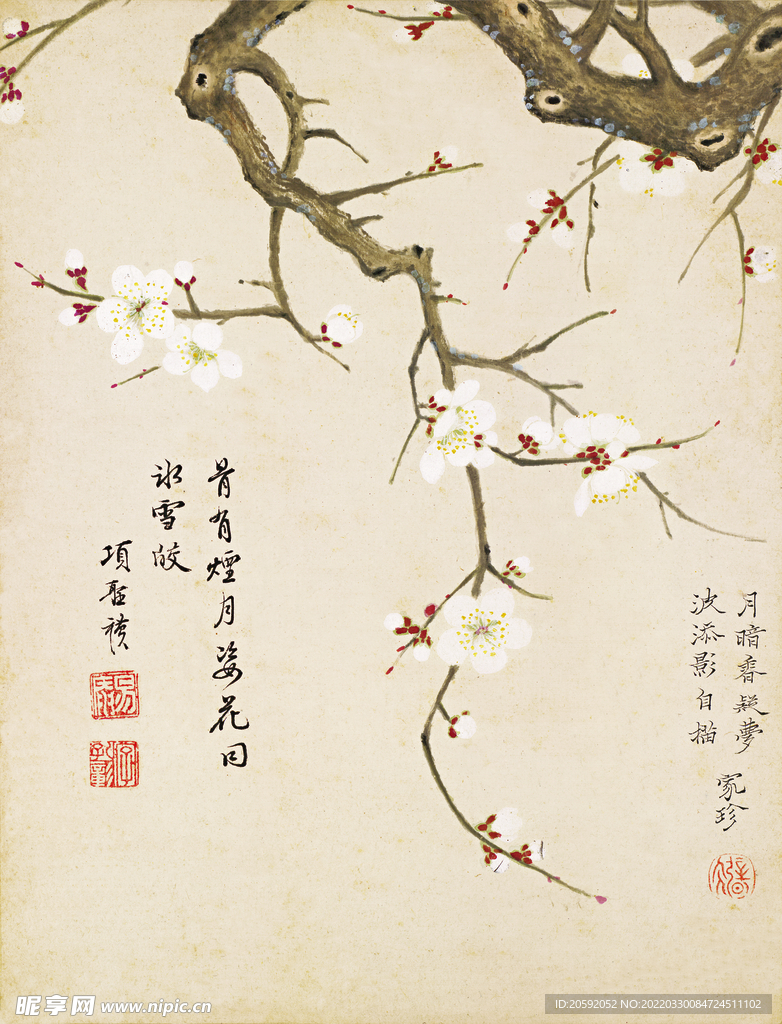 月暗香凝夢
波添影自描
家珍
骨有煙月姿花同
冰雪皎
項聖謨
昵享网 www.nipic.cn
ID:20592052 NO:20220330084724511102